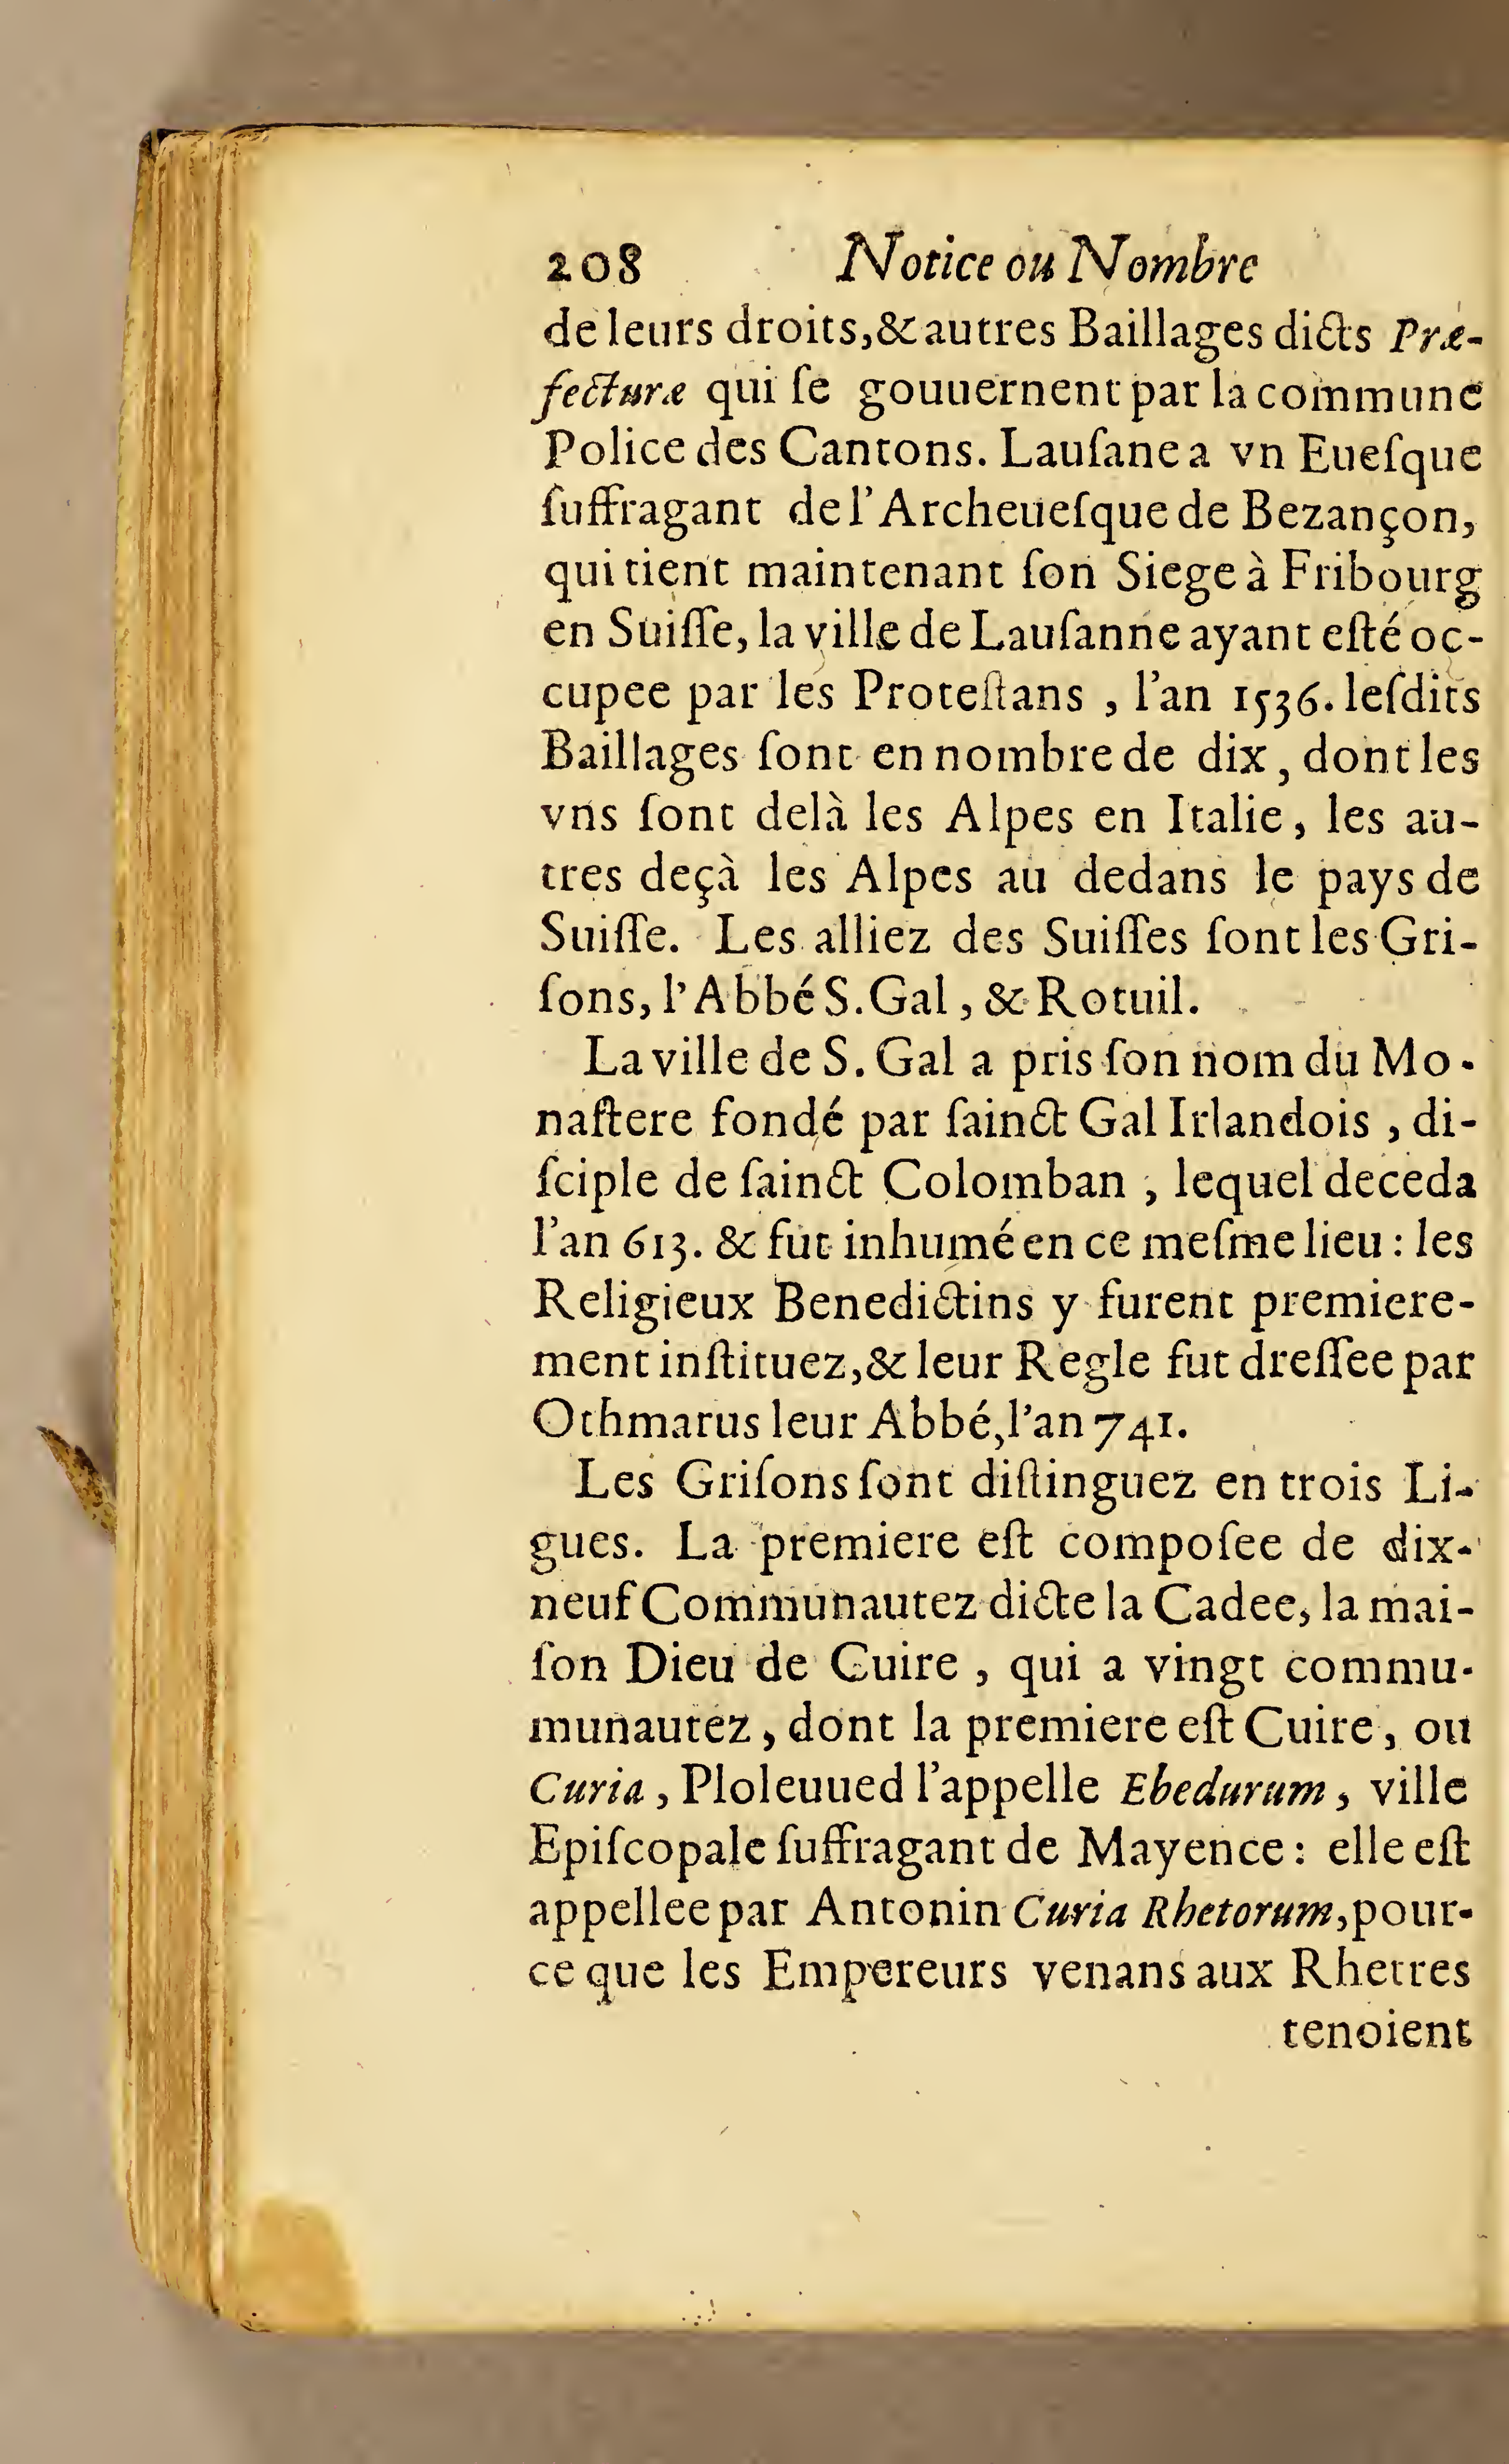 208 Notice ou Nombre
de leurs droits,&autres Baillages dicts Præ-
fecturæ qui ſe gouuernent par la commune
Police des Cantons. Lauſane a vn Eueſque
ſuffragant de l'Archeueſque de Bezançon,
qui tient maintenant ſon Siege à Fribourg
en Suiſſe, la ville de Lauſanne ayant eſté oc-
cupee par les Proteſtans , l'an 1536. leſdits
Baillages ſont en nombre de dix , dont les
vns ſont delà les Alpes en Italie, les au-
tres deçà les Alpes au dedans le pays de
Suiſſe. Les alliez des Suiſſes ſont les Gri-
ſons, l'Abbé S. Gal , & Rotuil.
La ville de S. Gal a pris ſon nom du Mo-
naſtere fondé par ſainct Gal Irlandois , di-
ſciple de ſainct Colomban , lequel deceda
l'an 613. & fut inhumé en ce meſme lieu : les
Religieux Benedictins y furent premiere-
ment inſtituez,& leur Regle fut dreſſee par
Othmarus leur Abbé,l'an 741.
Les Griſons ſont diſtinguez en trois Li-
gues. La premiere eſt compoſee de dix-
neuf Communautez dicte la Cadee, la mai-
ſon Dieu de Cuire , qui a vingt commu-
munautez , dont la premiere eſt Cuire , ou
Curia , Ploleuued l'appelle Ebedurum , ville
Epiſcopale ſuffragant de Mayence : elle eſt
appellee par Antonin Curia Rhetorum,pour-
ce que les Empereurs venans aux Rhetres
tenoient